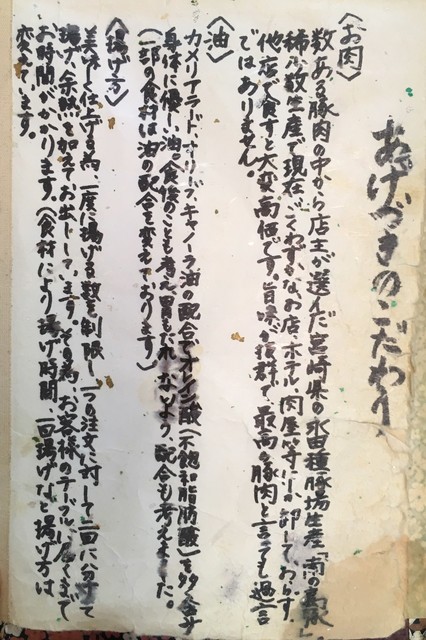 あげづきのこだわり
〈お肉〉
数ある豚肉の中から店主が選んだ宮崎県の永田種豚場生産「南の島豚」
稀少数生産で現在、ごくわずかなお店、ホテル、肉屋等にしか卸しておらず、
他店で食すと大変高価です。旨味が抜群で最高の豚肉と言っても過言
ではありません。
〈油〉
カメリアラード、オリーブ、キャノーラ油の配合でオレイン酸(不飽和脂肪酸)を多く含み
身体に優しい油。食後のことも考え胃もたれしないよう、配合も考えました。
(一部の食材は油の配合を変えております)
〈揚げ方〉
美味しく仕上げる為、一度に揚げる数を制限し、一つの注文に対して二回に分けて
揚げ、余熱を加えてお出ししています。その為、お客様のテーブルに届くまで
お時間がかります。(食材により揚げ時間、一回揚げなど揚げ方は
変えています。